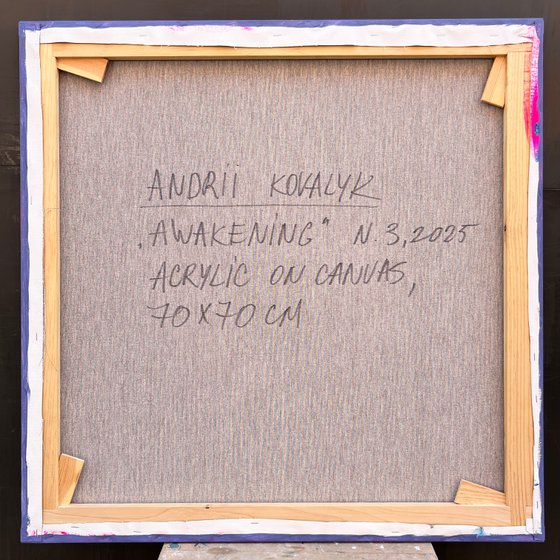 ANDRII KOVALYK
„AWAKENING“ N. 3, 2025
ACRYLIC ON CANVAS,
70X70 CM